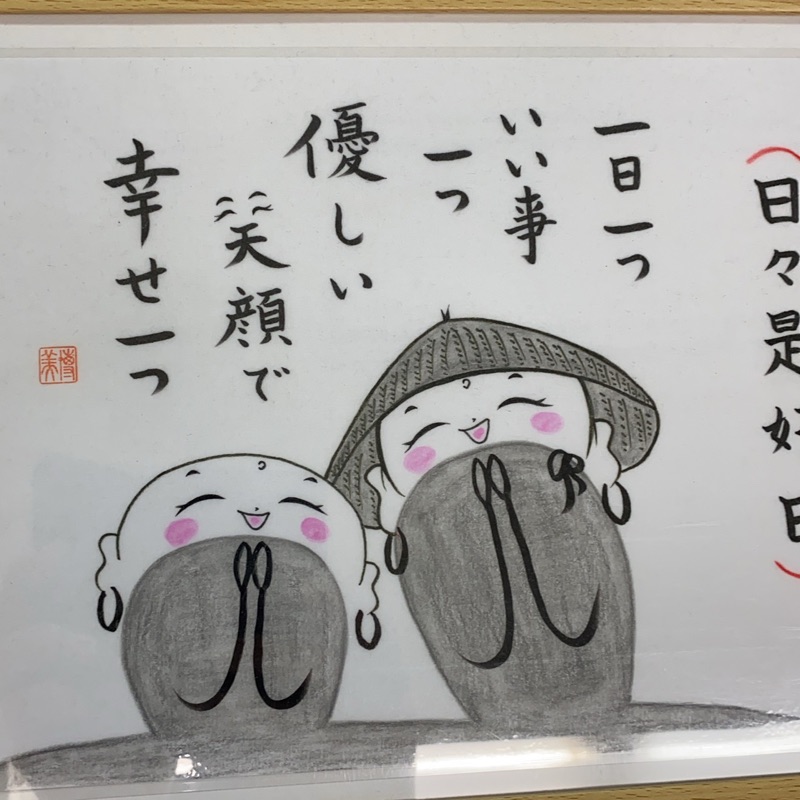 日々是好日
一日一つ
いい事
一つ
優しい
笑顔で
幸せ一つ
博美